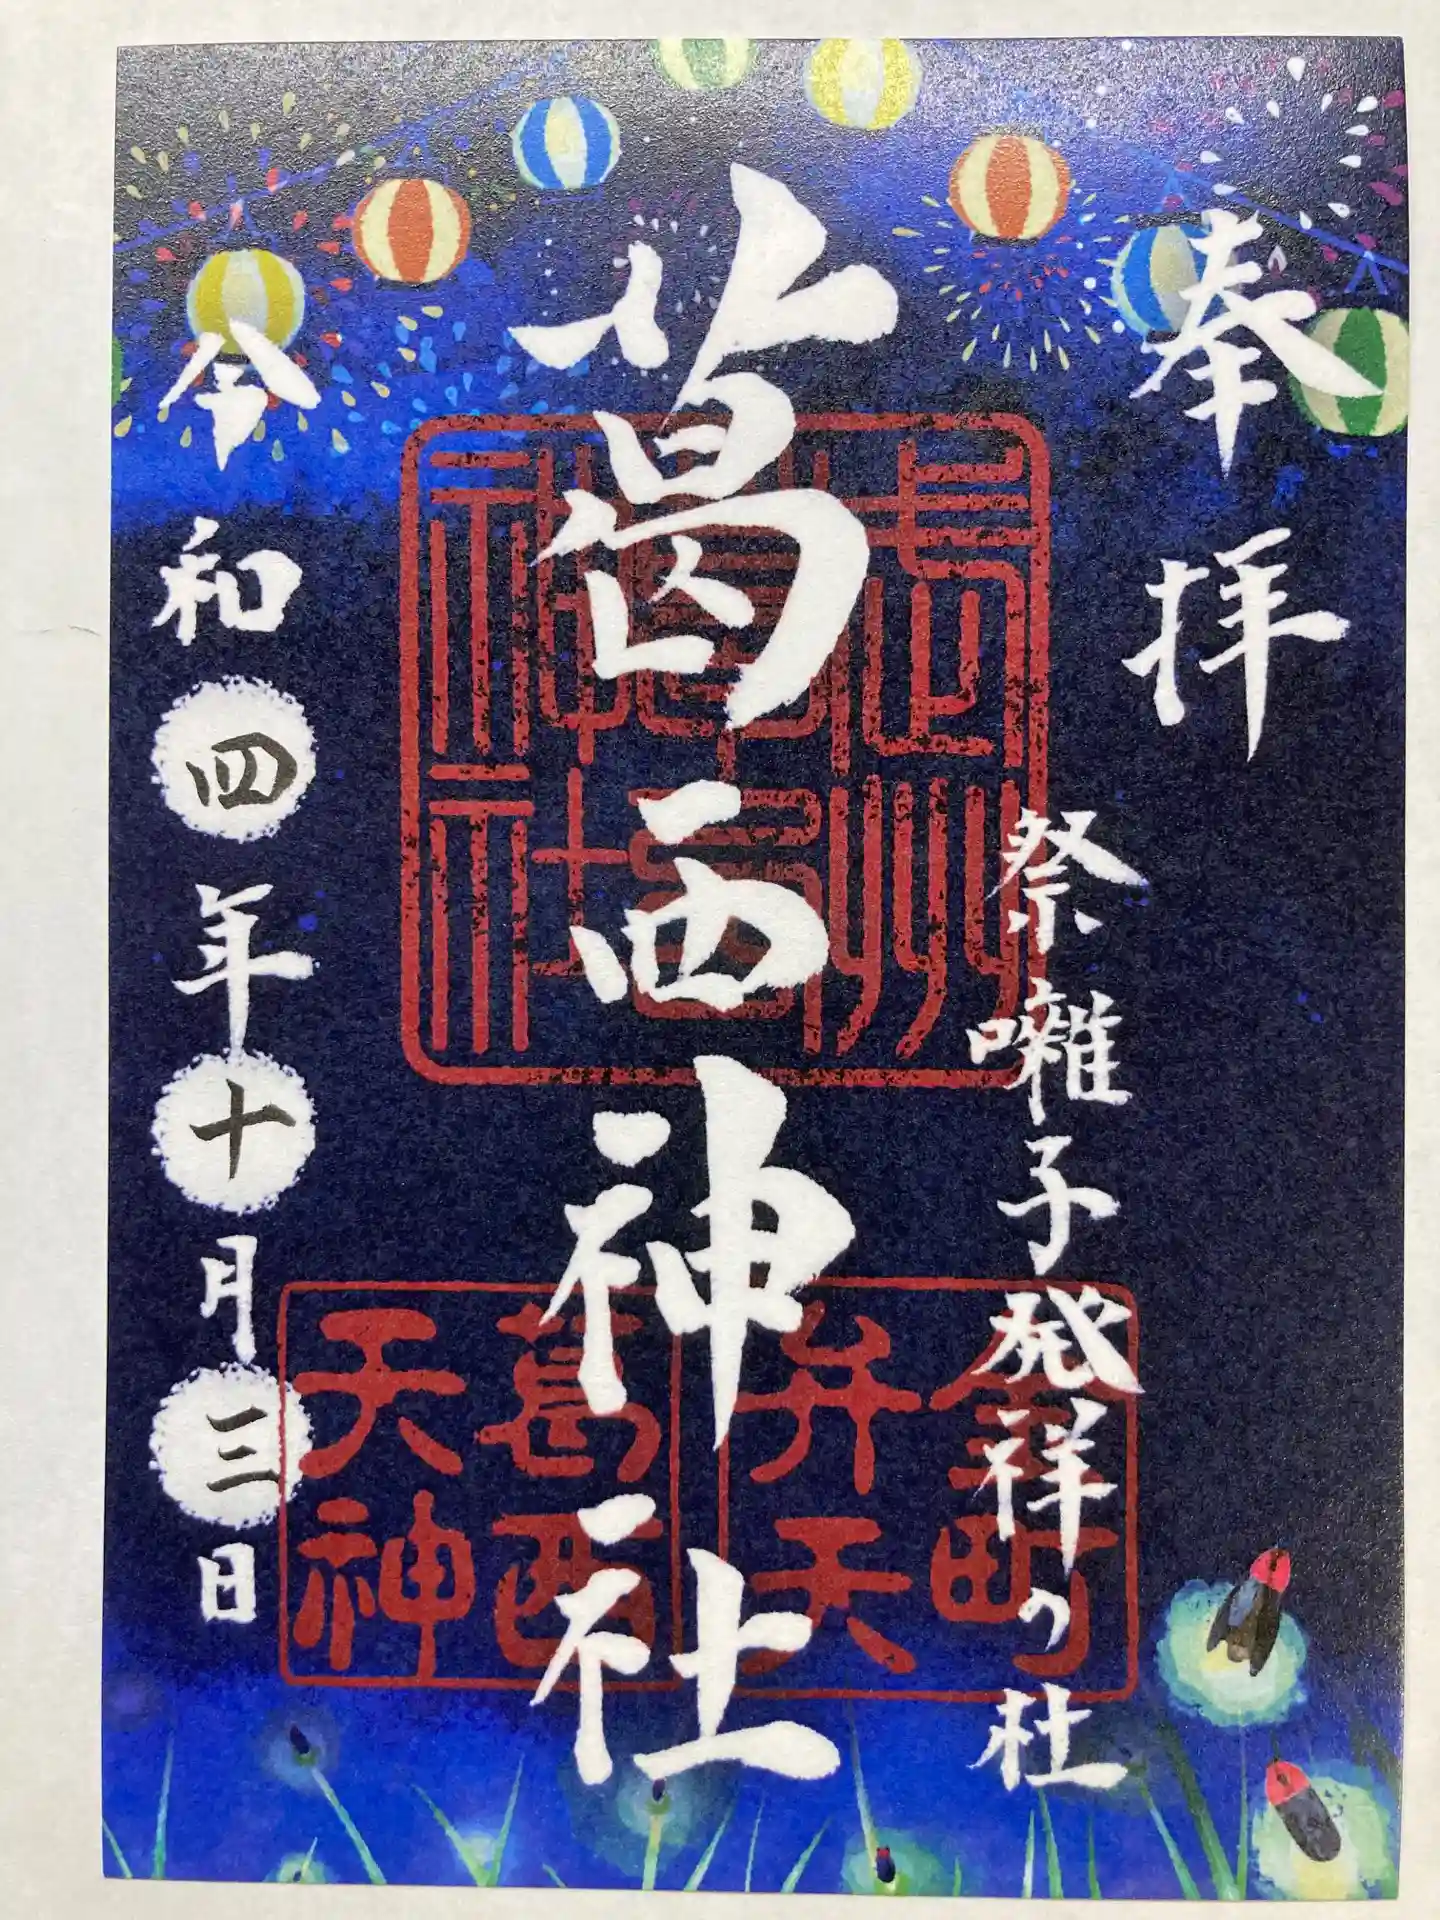 奉拝
祭囃子発祥の社
葛西神社
令和四年十月三日
武州
神社
金町
弁天
葛西
天神